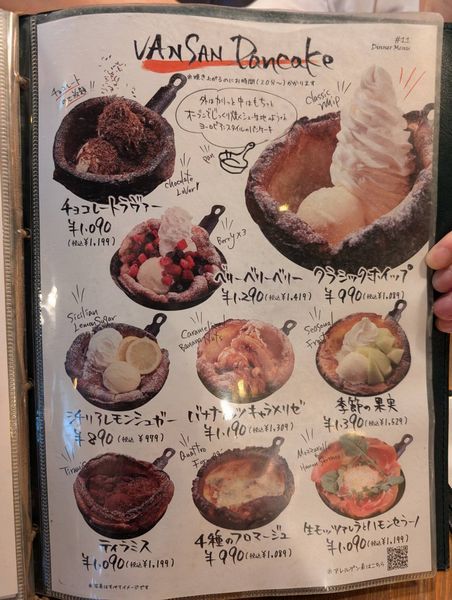 #11
Dinner Menu
VANSAN Pancake
※焼き上がるのにお時間(20分〜)かかります
外はカリっと中はもちっ
オーブンでじっくり焼くシュー生地のような
ヨーロピアンスタイルのパンケーキ
pan
classic whip
chocolate Lover!
チョコレートラヴァー
¥1,090
(税込¥1,199)
Berry×3
ベリーベリーベリー
¥1,290(税込¥1,419)
クラシックホイップ
¥990(税込¥1,089)
Sicilian
Lemon Sugar
シチリアレモンシュガー
¥890(税込¥979)
Caramelized
Banana Nuts
バナナナッツキャラメリゼ
¥1,190(税込¥1,309)
Seasonal
Fruits
季節の果実
¥1,390(税込¥1,529)
ティラミス
¥1,090(税込¥1,199)
Quattro
4種のフロマージュ
¥990(税込¥1,089)
Mozzarella
生モッツァレラとハモンセラーノ
¥1,090(税込¥1,199)
※写真はすべてイメージです
※アレルゲン表はこちら